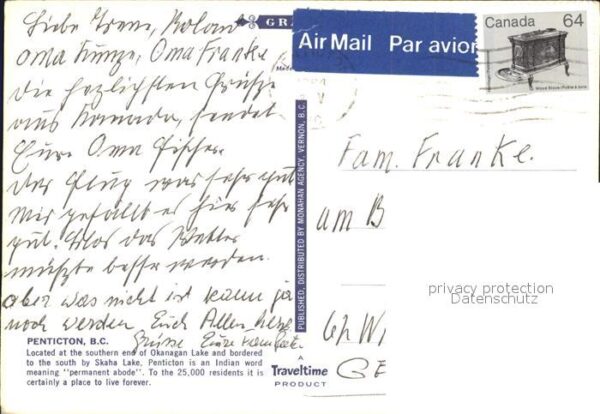 Liebe Irene, Roland
Oma Kunze, Oma Franke
Die herzlichsten Grüße
aus Kanada, sendet
Eure Oma Fischer.
Der Flug war sehr gut
Mir gefällt es hier sehr
gut. Blos das Wetter
müßte besser werden.
aber was nicht ist kann ja
noch werden. Euch Allen herzl.
Grüsse Eure
PENTICTON, B.C.
Located at the southern end of Okanagan Lake and bordered
to the south by Skaha Lake, Penticton is an Indian word
meaning "permanent abode". To the 25,000 residents it is
certainly a place to live forever.
GRA
PUBLISHED, DISTRIBUTED BY MONAHAN AGENCY, VERNON, B.C.
A
Traveltime
PRODUCT
Air Mail Par avion
Canada 64
Fam. Franke.
am B
privacy protection
Datenschutz
GE